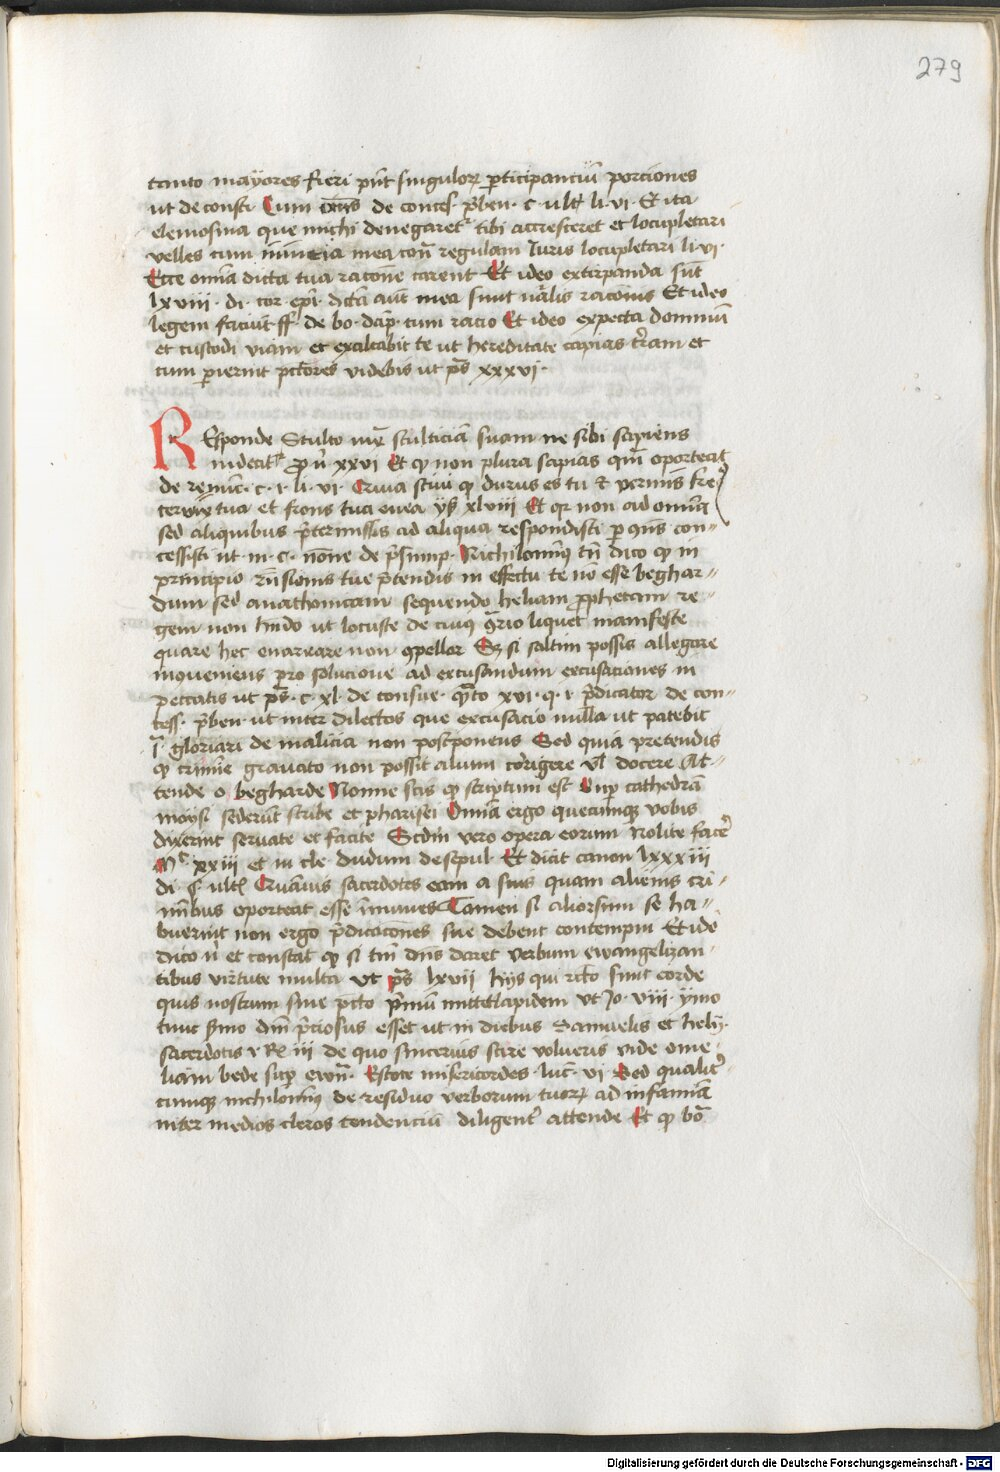 279
tanto mayores fieri pnt singuloꝝ ꝑticipanciū porciones
ut de consti Cum de conces p̄ben c ult li vi Et ita
elemosina que michi denegaretᷣ tibi accresceret et locupletari
velles cum iniuria mea cont̄ regulam Iuris locupletari li vi
Ecce omīa dicta tua racōne carent Et ideo extirpanda sūt
lxviii di cor epī dicta aūt mea sunt nālis racōnis Et ideo
legem faciūt ff de bo dāp cum racio Et ideo expecta dominū
et custodi viam et exaltabit te ut hereditate capias tr̄am et
cum ꝑierint pctōres videbis ut ps xxxvi
REsponde Stulto iux̄ stulticiā suam ne sibi sapiens
uideatᷣ ꝓū xxvi Et ꝙ non plura sapias qm̄ oporteat
de renūc c i li vi Quia sciui ꝙ durus es tu et neruus fer
ceruix tua et frons tua enea ys xlviii Et qr non ad omīa
sed aliquibus p̄termissis ad aliqua respondisti ꝑ qn̄s con-
cessisti ut in c nōne de p̄sump Nichilomiꝰ tn̄ dico ꝙ in
principio rn̄sionis tue p̄tendis in effectu te nō esse beghar-
dum sed anathomitam sequendo heliam ꝓphetam re-
gem non hn̄do ut locuste de cuiꝰ 9rio liquet manifeste
quare hec enarrare non 9pellor Sꝫ si saltim possis allegare
inqueniens pro solucione ad excusandum excusaciones in
peccatis ut ps c xl de consue q̄to xvi q i p̄dicator de con-
cess p̄ben ut inter dilectos que excusacio nulla ut patebit
ī gloriari de malicia non postponens Sed quia pretendis
ꝙ crimīe grauato non possit alium corrigere ul docere At-
tende o begharde Nonne scis ꝙ scriptum est Sup cathedrā
moysi sederūt scribe et pharisei Omīa ergo quecumqꝫ vobis
dixerint seruate et facite Scdm vero opera eorum nolite facē
Mᵗ xxiii et in cle dudum de sepul Et dicit canon lxxxiii
di § ult Quāuis sacerdotes eam a suis quam alienis cri-
mībus oporteat esse īmunes Tamen si aliorsum se ha-
buerint non ergo p̄dicacōnes sue debent contempni Et idō
dico ū et constat ꝙ si tm̄ dn̄s daret verbum ewangelizan-
tibus virtute multa vt ps lxvii hijs qui rc̄to sunt corde
quis nostrum sine pctō p̄mū mittet lapidem vt Jo viii ymo
tunc sermo dm̄ p̄ciosus esset ut in diebus Samuelis et hely
sacerdotis i Rͤ iii de quo sincerius scire volueris vide ome-
liam bede sup ewn̄ Estote misericordes luc̄ vi Sed qualit̄
cumqꝫ nichilomīꝰ de residuo verborum tuoꝝ ad infamiā
inter medios cleros tendenciū diligent̄ attende Et ꝙ bō
Digitalisierung gefördert durch die Deutsche Forschungsgemeinschaft - DFG